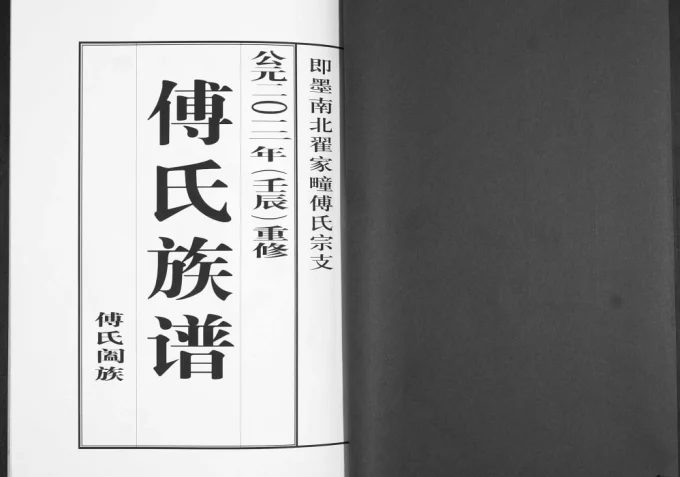 即墨南北翟家疃傅氏宗支
公元二〇一二年(壬辰)重修
傅氏族谱
傅氏阖族